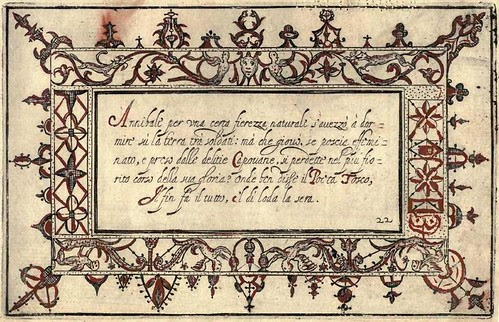 Annibale per vna certa fierezza naturale s'auezzò à dor-
mire sù la terra trà soldati: mà che giouò, se poscia effemi-
nato, e preso dalle delitie Capouane, si perdette nel più fio-
rito corso della sua gloria? Onde ben disse il Poeta Tosco,
Il fin fà il tutto, e'l dì loda la sera.
22